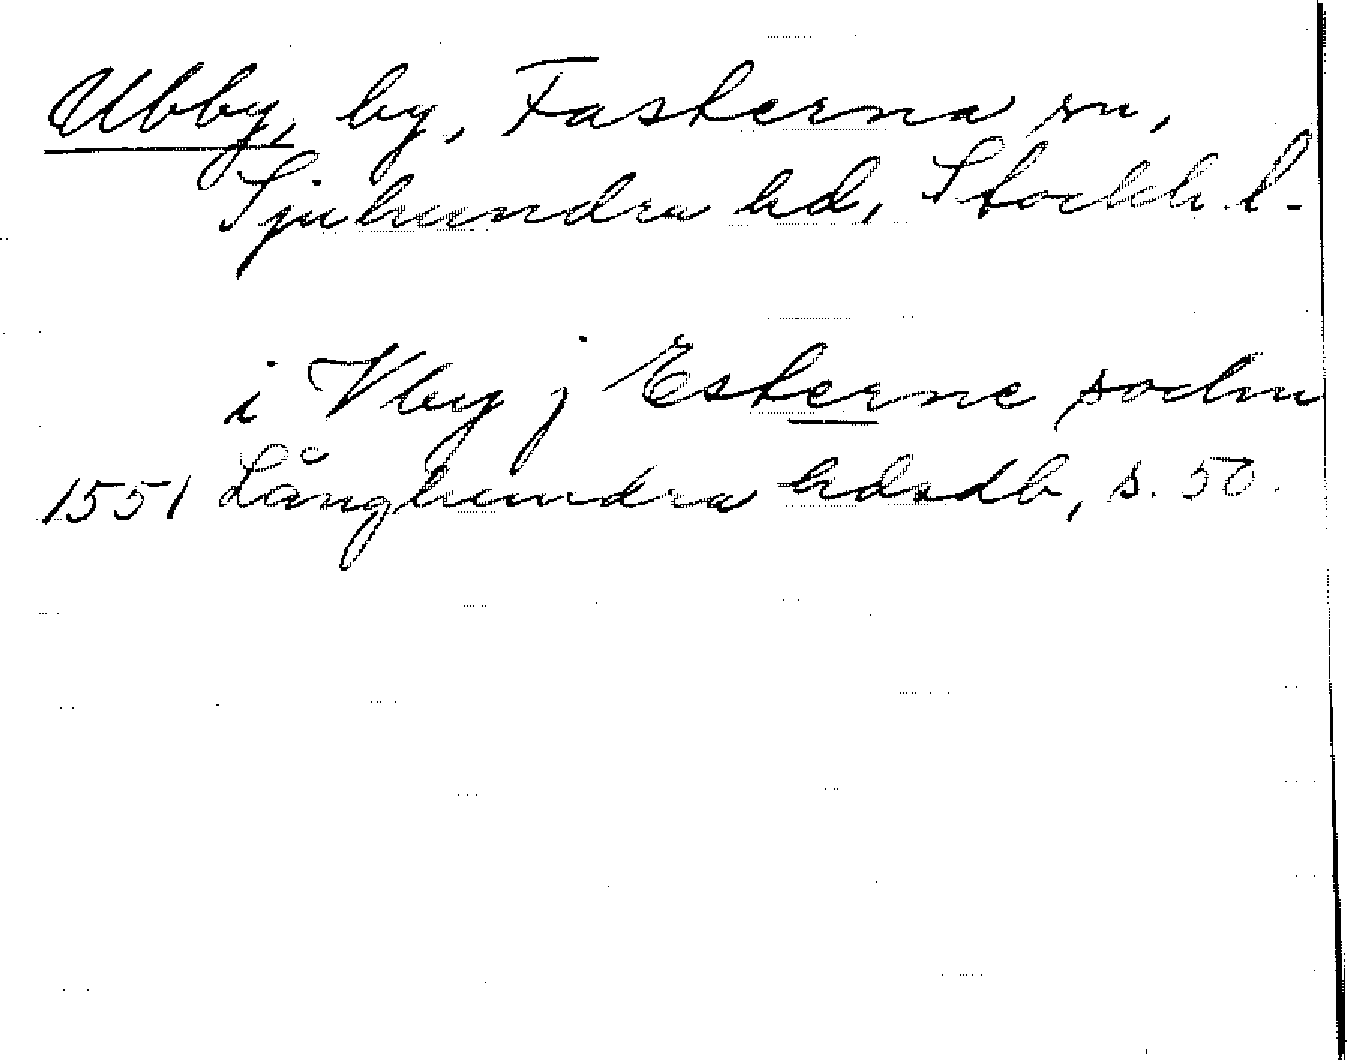 Ubby, by, Fasterna sn,
Sjuhundra hd, Stockh. l.
i Vby j Esterne sochn
1551 Långhundra hdsdb, s. 50.